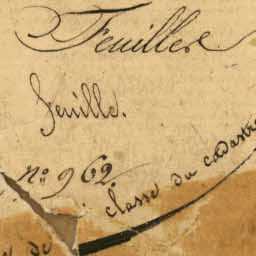 Feuille
feuille.
nº 962
classe du cadastre
de